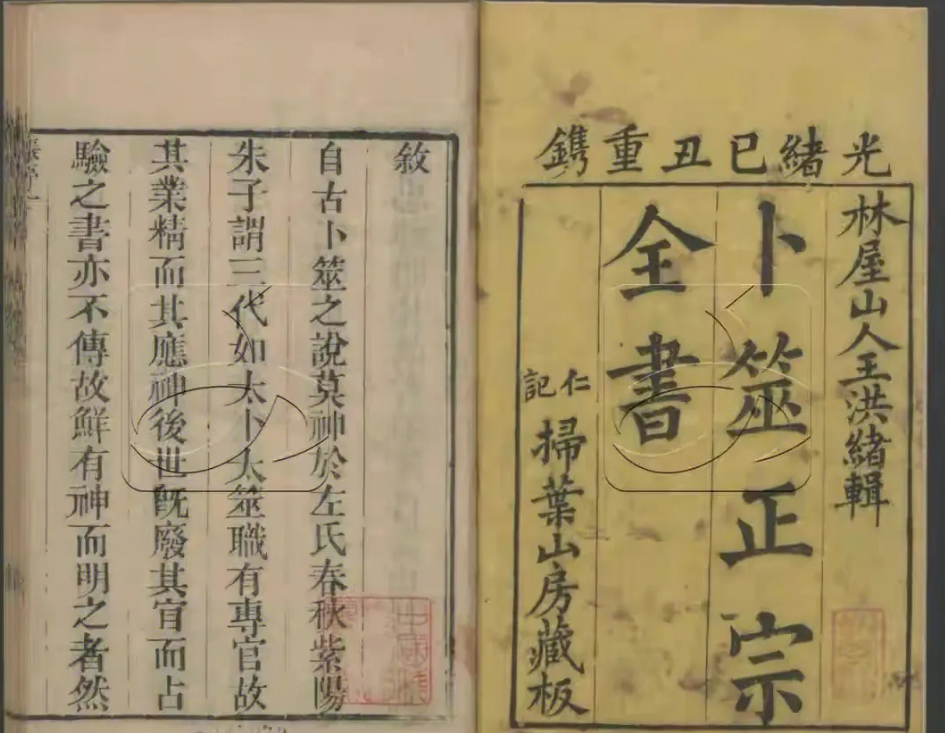 光緒已丑重鐫
林屋山人王洪緒輯
卜筮正宗
全書
仁記
掃葉山房藏板
敘
自古卜筮之說莫神於左氏春秋紫陽
朱子謂三代如太卜太筮職有專官故
其業精而其應神後世旣廢其官而占
驗之書亦不傳故鮮有神而明之者然